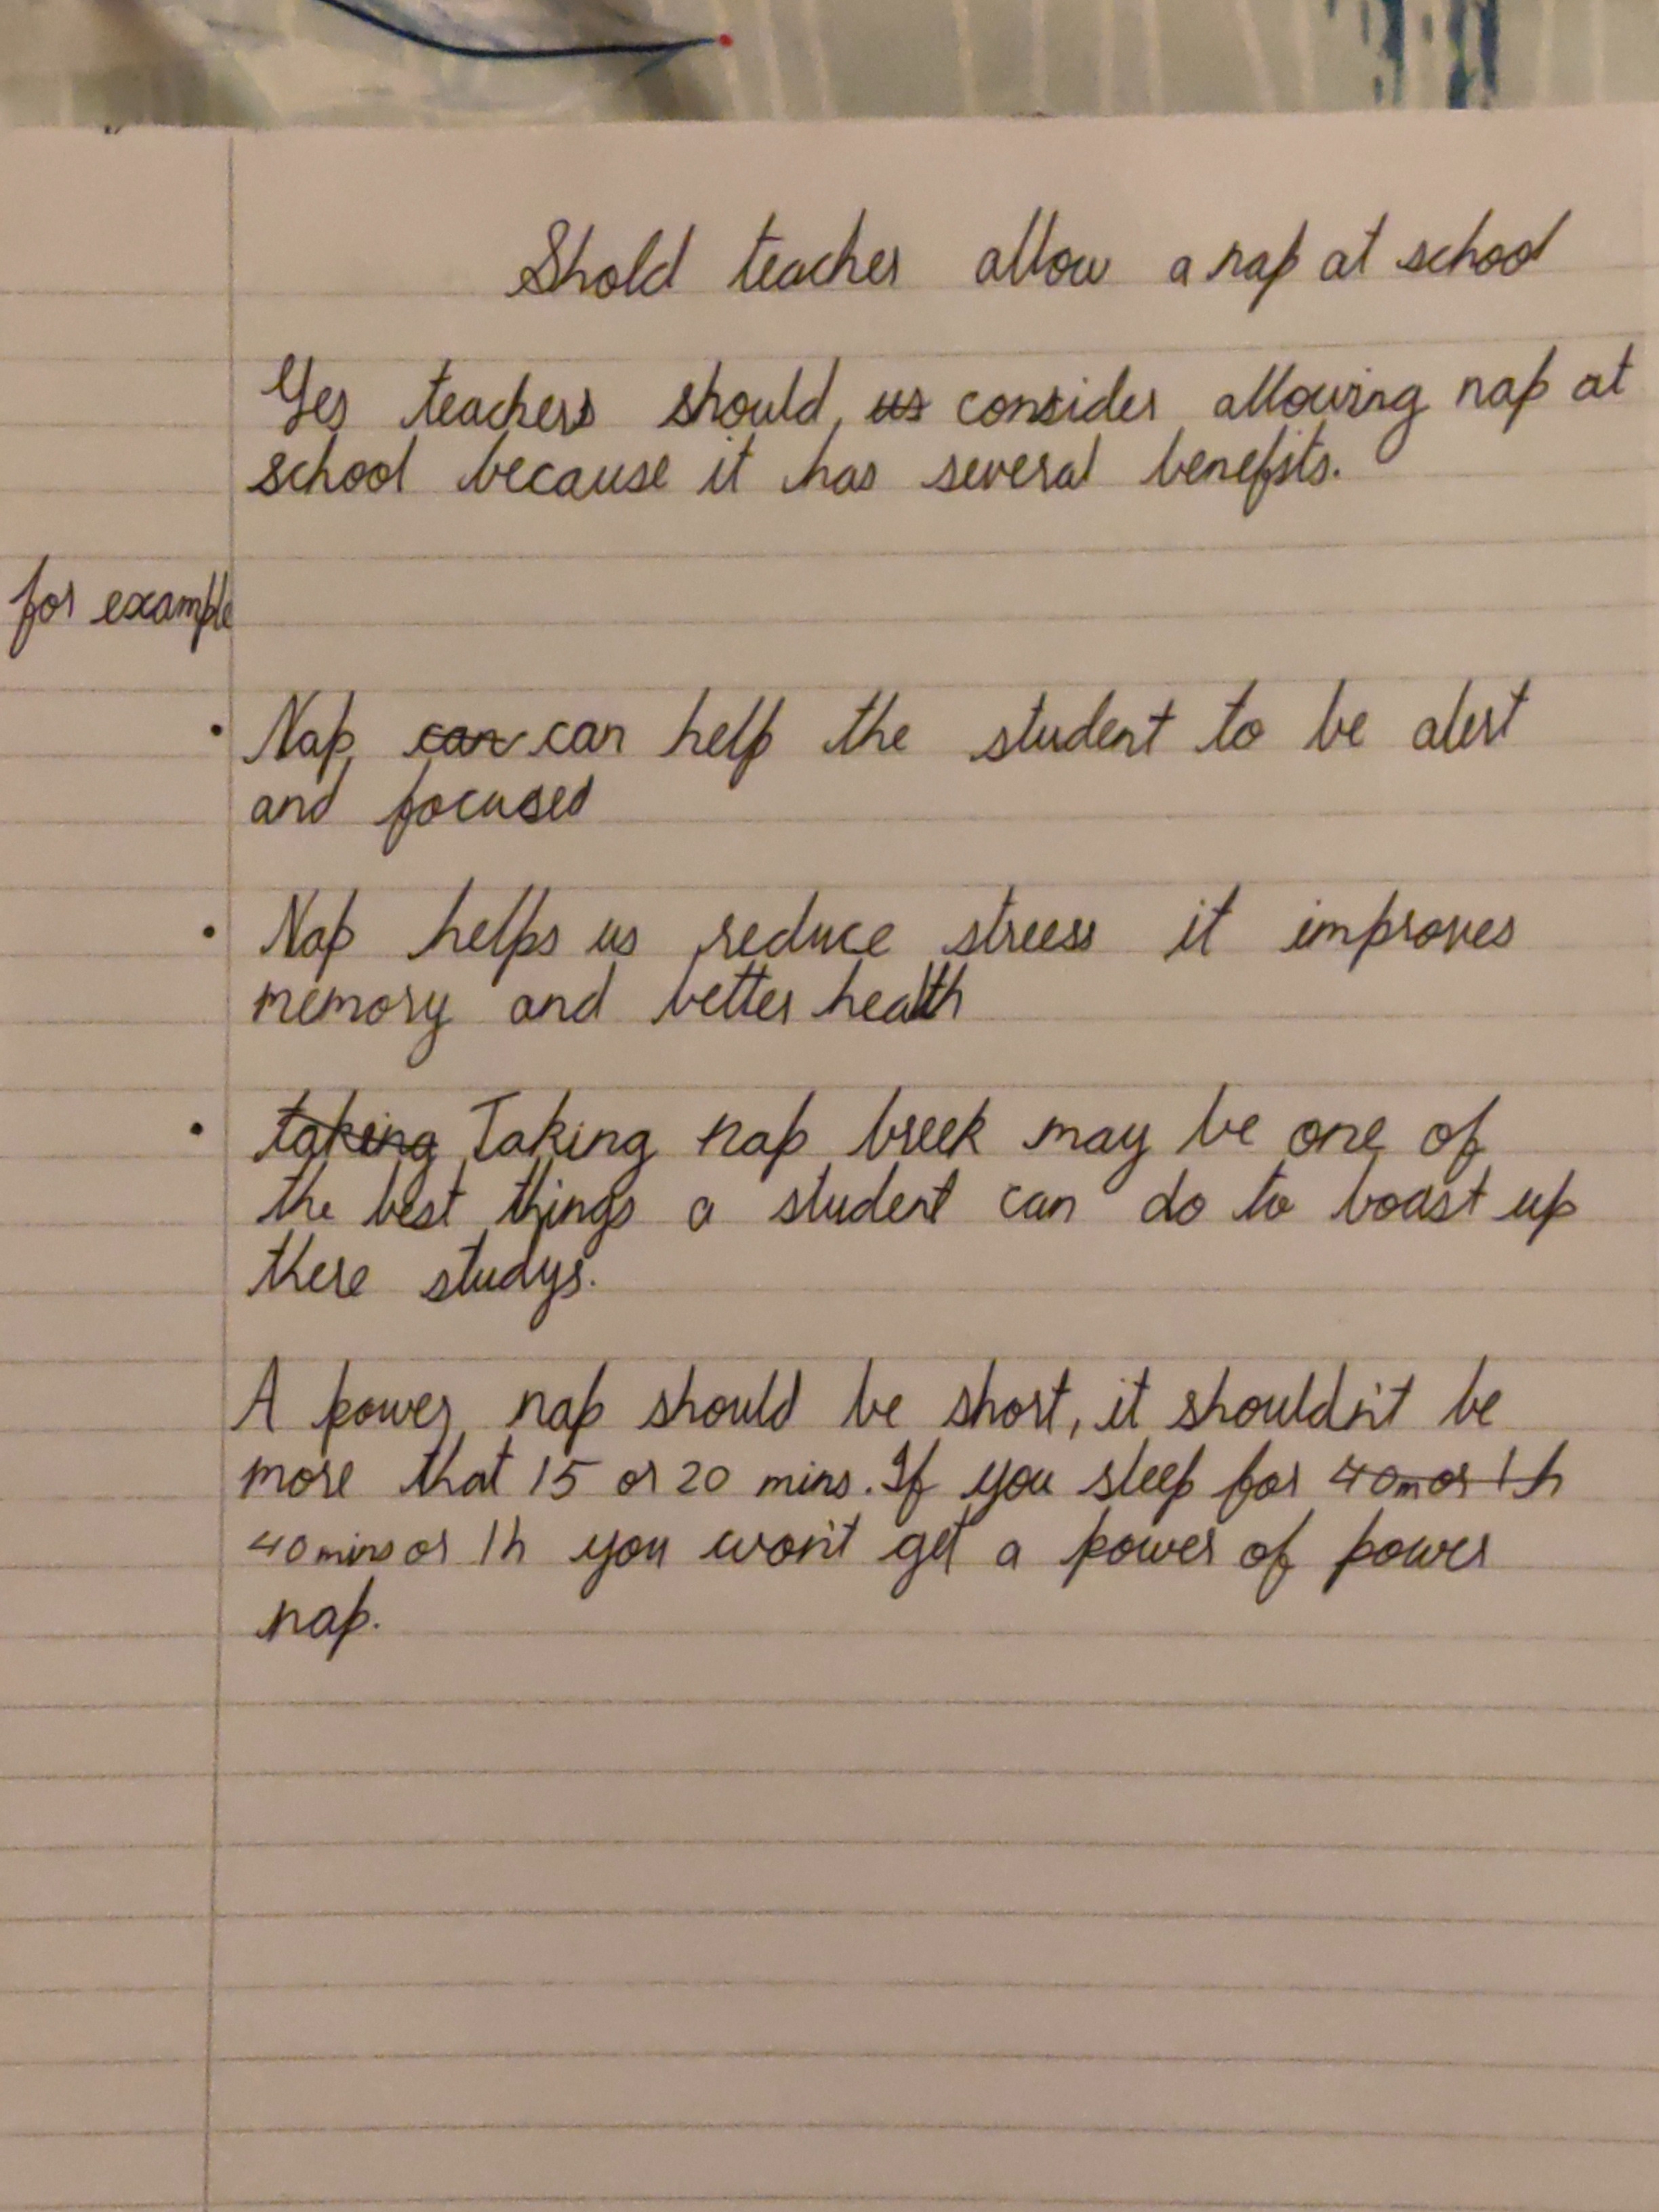 Shold teacher allow a nap at school
Yes teachers should us consider allowing nap at
school because it has several benefits.
for example
• Nap can can help the student to be alert
and focused
• Nap helps us reduce streess it improves
memory and better health
• taking Taking nap breek may be one of
the best things a student can do to boast up
there studys.
A power nap should be short, it shouldn't be
more that 15 or 20 mins. If you sleep for 40m or 1h
40mins or 1h you won't get a power of power
nap.